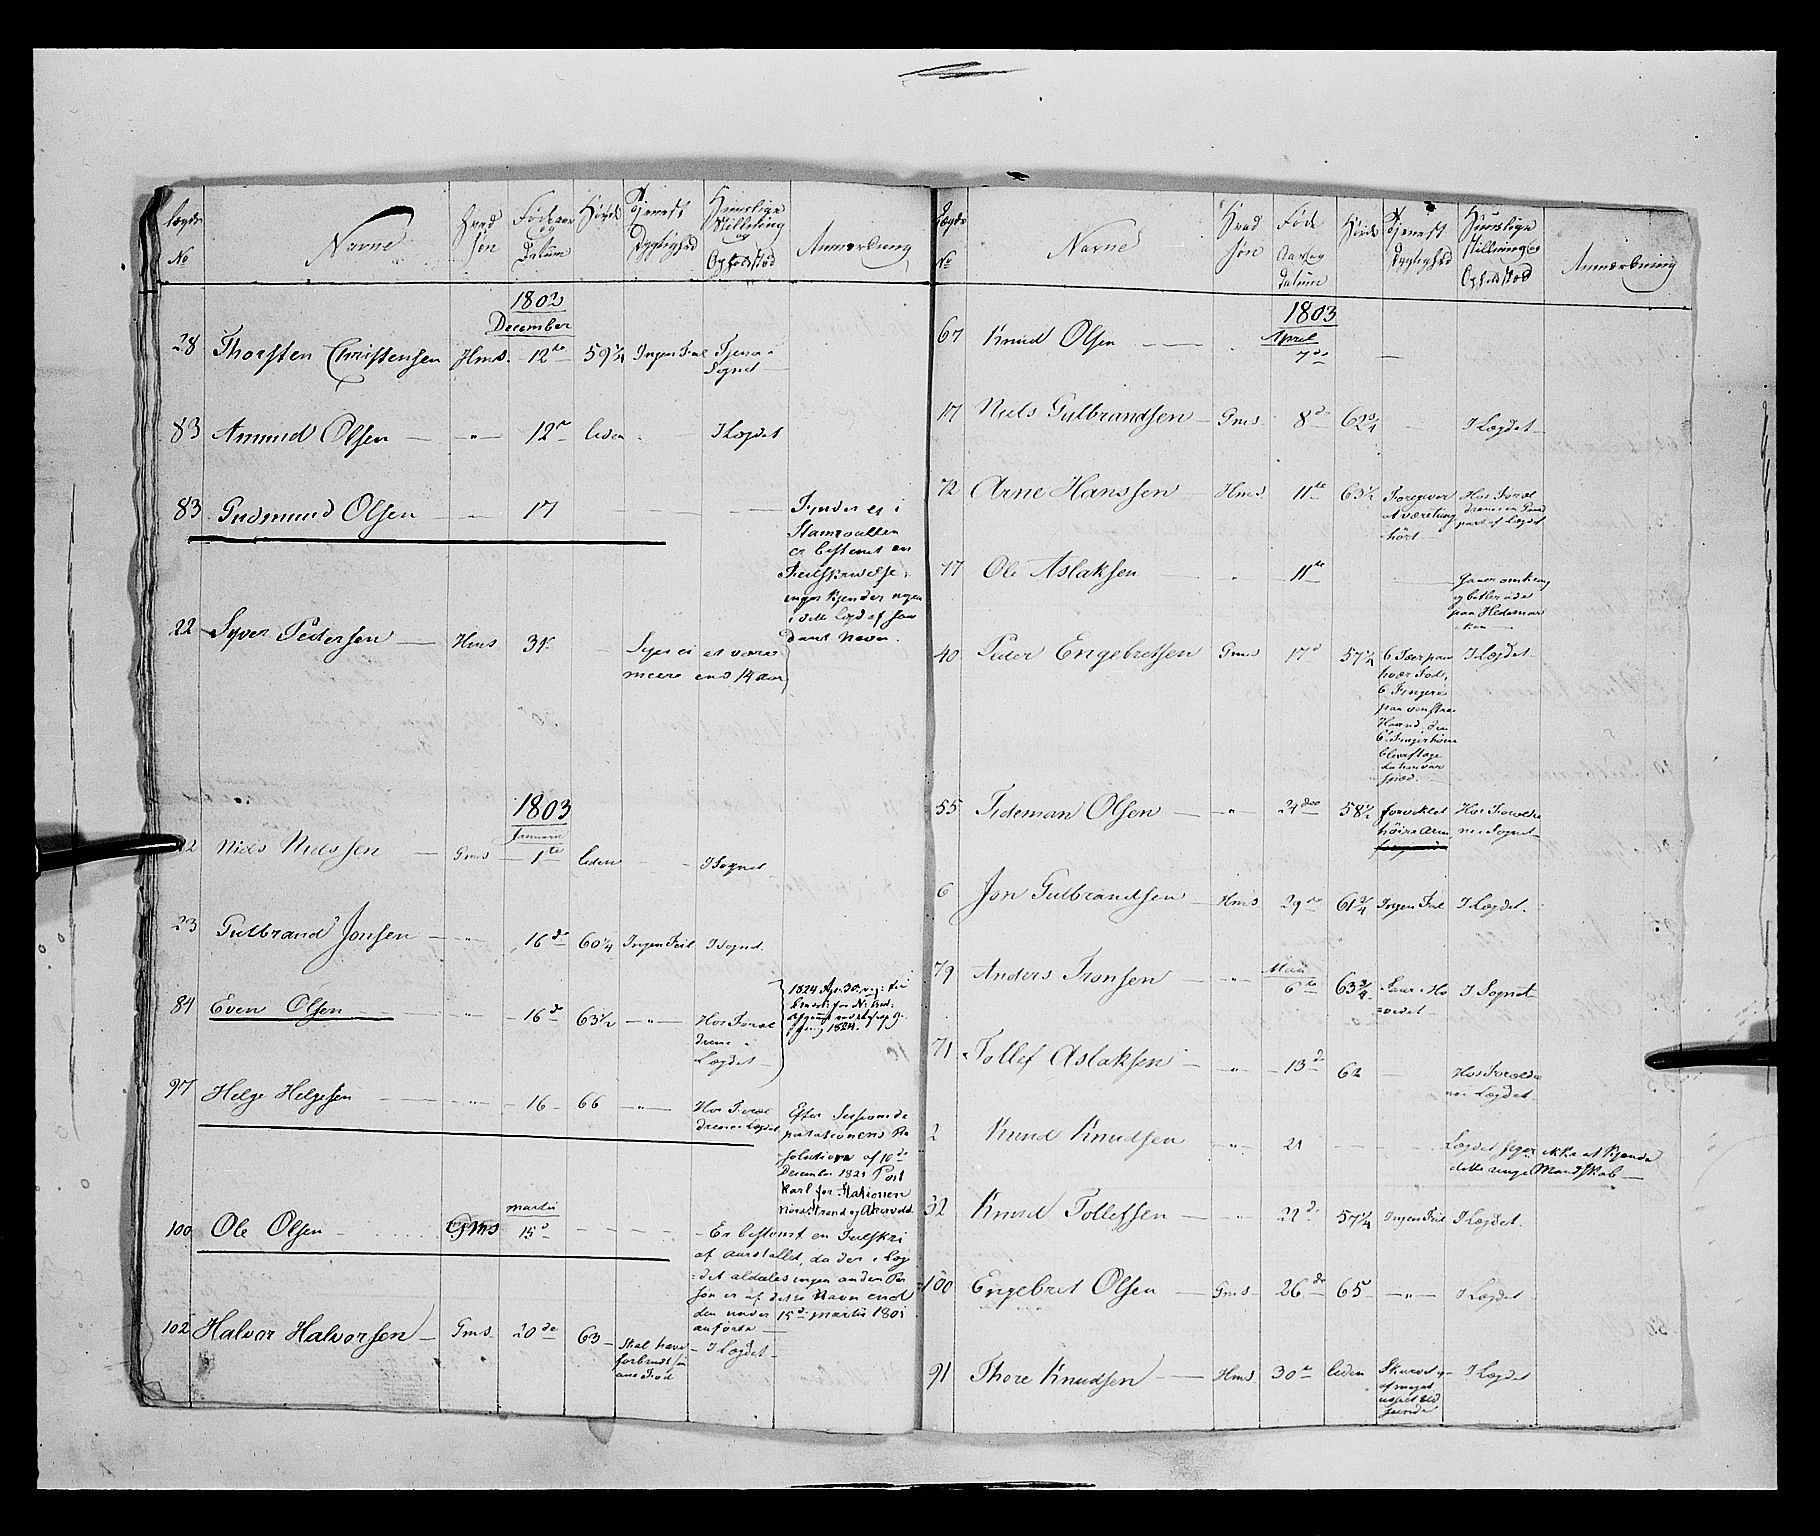 Lægds No Navne Hvad Søn Føde aar og Datum Høyde Tjenest Dygtighed Huuslige Stilling og Opholdsted Anmærkning
1802
December
28 Thorsten Christensen Hms. 12te 59 1/4 Ingen Feil Tjener i
Sognet
83 Amund Olsen — " — 12te liden I Lægdet
83 Gudmund Olsen — " — 17 — — —
Findes ei i
Stamrullen
er bestemt en
Feilskrivelse,
ingen kjender nogen
i dette Lægd af saa
dant Navn.
22 Syver Pedersen — Hms 31te — Siges ei at være
meere end 14 aar
1803
Januarii
22 Niels Nielsen — Gms — 1te liden — I Sognet
23 Gulbrand Jonsen — " — 16de 60 1/4 Ingen Feil I Sognet.
84 Even Olsen — " — 16de 63 1/2 — " — Hos Foræl
drene i
Lægdet
1824 Apr. 30
1824.
97 Helge Helgesen — " — 16 66 — " — Hos Foræl
drene i Lægdet
Efter Sessionsde
putationens Re
solution af 10de
December 1821 Post
karl for Stationen
Nordstrand og Akersvold
martii
100 Ole Olsen — Gms 15d — — —
Er bestemt en Feilskri
af aarstallet, da der i Læg
det aldeles ingen anden Per
son er af dette Navn end
den under 15d martii 1801
anførte —
102 Halvor Halvorsen — Gms — 20de 63 — Skal have
forbrændt sin
ene Fod
I Lægdet
Lægds No Navne Hvad Søn Føde Aar og Datum Høide Tjenest Dygtighed Huuslige Stilling og Opholdsted Anmærkning
1803
April
67 Knud Olsen — — " 7de —
17 Niels Gulbrandsen — Gms. 8d 62 3/4 — I Lægdet
72 Arne Hanssen — Hms 11te 63 1/2 Foregiver
at være tung
hørt
Hos Foræl
drene
77 Ole Aslaksen — " 11te — Gaaer omkring
og betler ude
paa Hedemar
ken
40 Peder Engebretsen Gms 17d 57 1/4 6 Tæer paa
hver Fod,
6 Fingre
paa venstre
Haand, den
I Lægdet
55 Tideman Olsen — " — 24de 58 1/2 forvreklet
høire Arm
Hos Forældre
ne i Sognet
6 Jon Gulbrandsen — Hms 29de 61 3/4 Ingen Feil I Lægdet.
Maii
79 Anders Tronsen — " — 6te 63 3/4 Saar i Ho
vedet
I Sognet
71 Tollef Aslaksen — " — 13d 62 — Hos Forældre
ne i Lægdet
2 Knud Knudsen — " — 21 — — Lægdet siger ikke at kjende
dette unge Mandskab —
32 Knud Tollefsen — " — 22d 57 1/4 Ingen Feil I Lægdet.
100 Engebret Olsen — Gms. 26de 65 — " — I Lægdet
91 Thore Knudsen — Hms 30te liden Skurvet og
af meget
I Lægdet